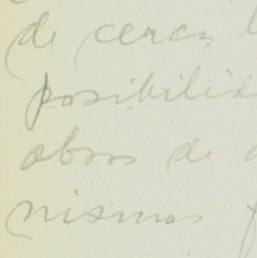 de cerca
posibilid
obras de
nismos